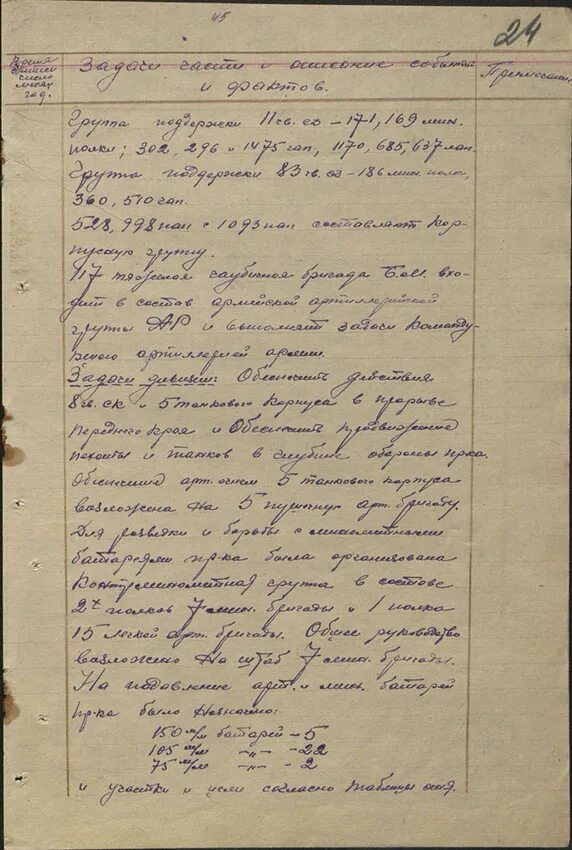 45
24
Время
число
месяц
год.
Задачи части и описание событий
и фактов.
Примечание
Группа поддержки 11 гв. сд – 171, 169 мин.
полки; 302, 296 и 1475 гап, 1170, 685, 637 лап.
Группа поддержки 83 гв. сд – 186 мин. полк,
360, 510 гап.
528, 998 пап с 1093 пап составляют кор-
пусную группу.
117 тяжелая гаубичная бригада Б.М. вхо-
дит в состав армейской артиллерийской
группы АР и выполняет задачи команду-
ющего артиллерией армии.
Задачи дивизии: Обеспечить действия
8 гв. ск и 5 танкового корпуса в прорыве
переднего края и обеспечить продвижение
пехоты и танков в глубине обороны пр-ка.
Обеспечение арт. огнем 5 танкового корпуса
возложена на 5 пушечную арт. бригаду.
Для разведки и борьбы с минометными
батареями пр-ка была организована
контрминометная группа в составе
2х полков 7 мин. бригады и 1 полка
15 легкой арт. бригады. Общее руководство
возложено на штаб 7 мин. бригады.
На подавление арт. и мин. батарей
пр-ка было назначено:
150 м/м батарей – 5
105 м/м –"– – 22
75 м/м –"– – 2
и участки и цели согласно таблицы огня.